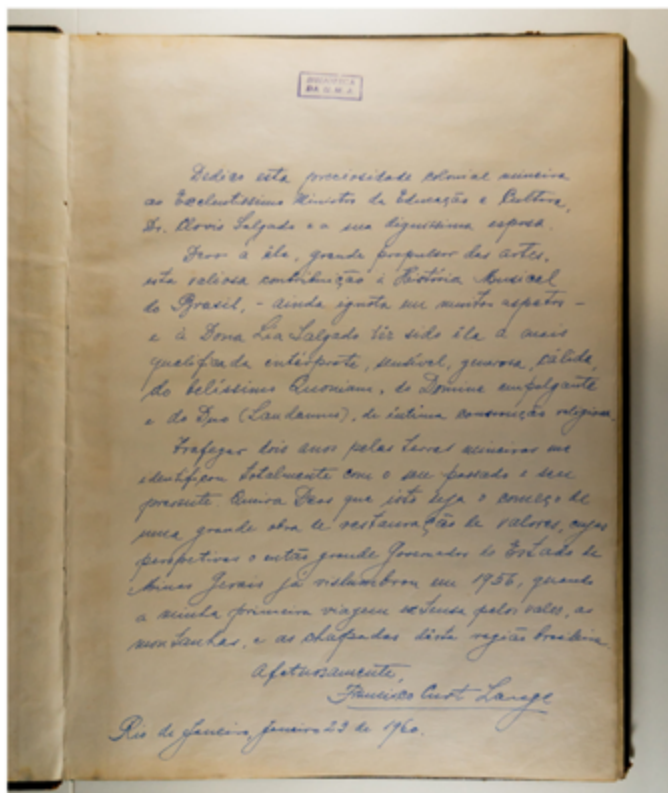 BIBLIOTECA
DA U. M. A.
Dedico esta preciosidade colonial mineira
ao Excelentíssimo Ministro da Educação e Cultura,
Dr. Clovis Salgado e a sua digníssima esposa.
Devo a êle, grande propulsor das artes,
esta valiosa contribuição à História Musical
do Brasil, - ainda ignota em muitos aspetos -
e à Dona Lia Salgado ter sido ela a mais
qualificada intérprete, sensível, generosa, cálida,
do belíssimo Quoniam, do Domine empolgante
e do Duo (Laudamus), de íntima construção religiosa.
Trafegar dois anos pelas terras mineiras me
identificou totalmente com o seu passado e seu
presente. Queira Deus que isto seja o começo de
uma grande obra de restauração de valores, cujas
perspetivas o então grande Governador do Estado de
Minas Gerais já vislumbrou em 1956, quando
a minha primeira viagem extensa pelos vales, as
montanhas, e as chapadas desta região brasileira.
Afetuosamente,
Francisco Curt Lange
Rio de Janeiro, Janeiro 23 de 1960.